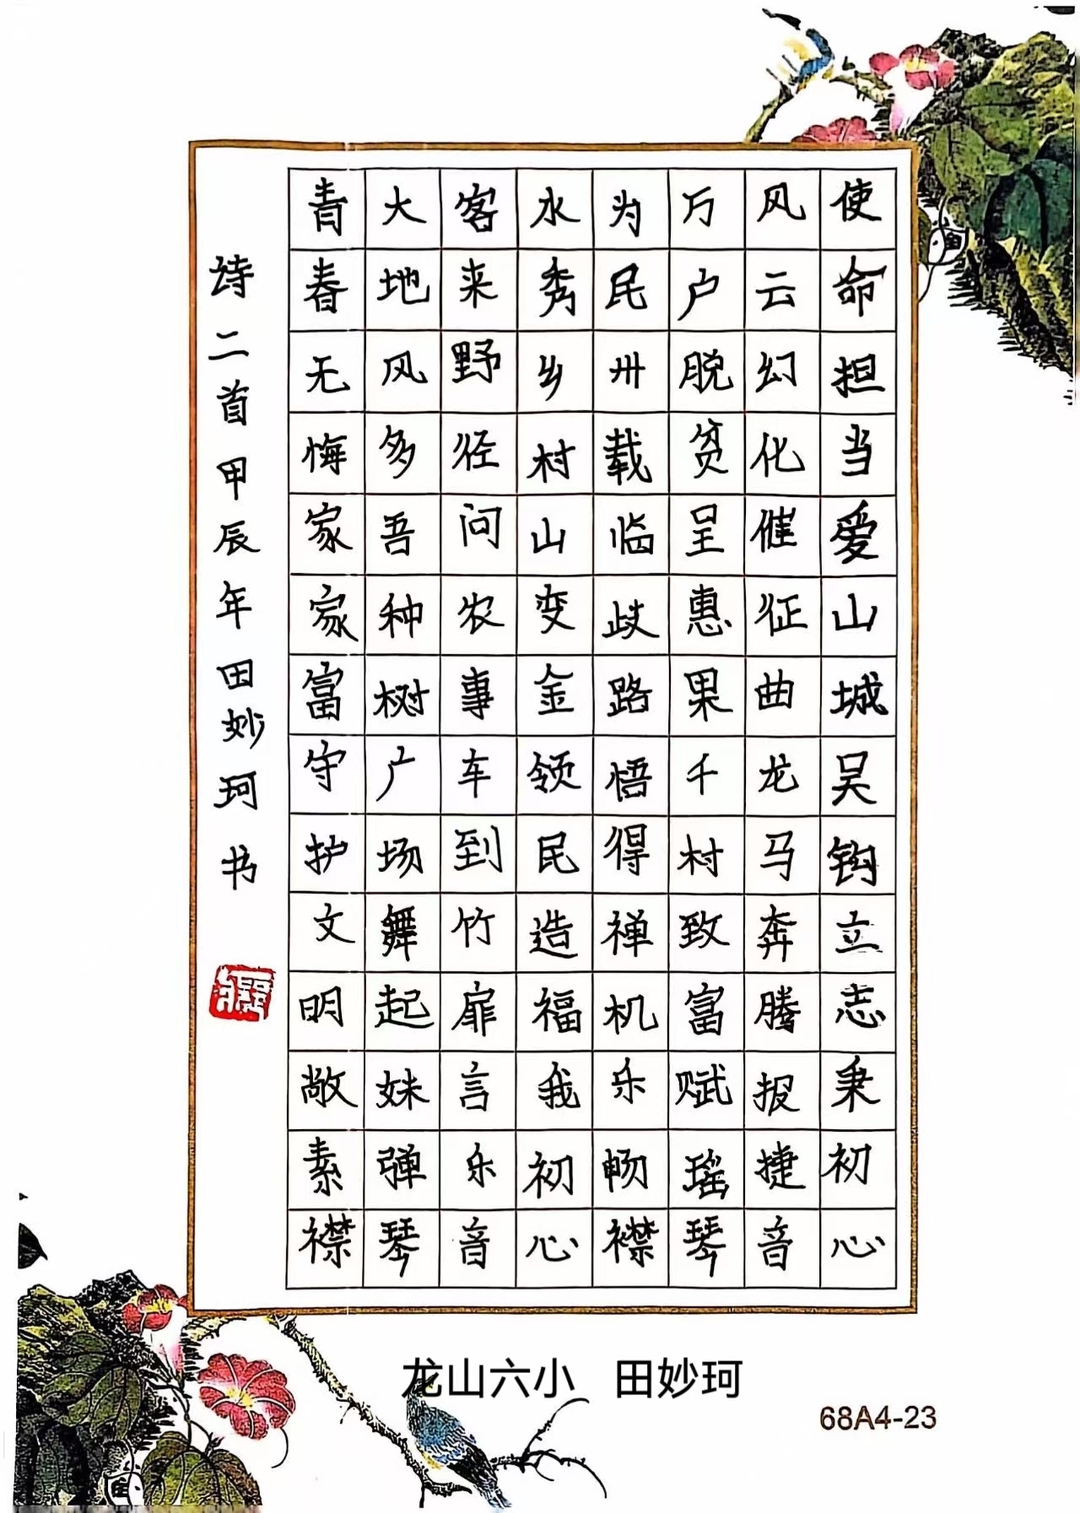 使命担当爱山城吴钩立志秉初心
风云幻化催征曲龙马奔腾报捷音
万户脱贫呈惠果千村致富赋瑶琴
为民卅载临歧路悟得禅机乐畅襟
水秀乡村山变金领民造福我初心
客来野径问农事车到竹扉言乐音
大地风多吾种树广场舞起妹弹琴
青春无悔家家富守护文明敞素襟
诗二首甲辰年田妙珂书
龙山六小 田妙珂
68A4-23